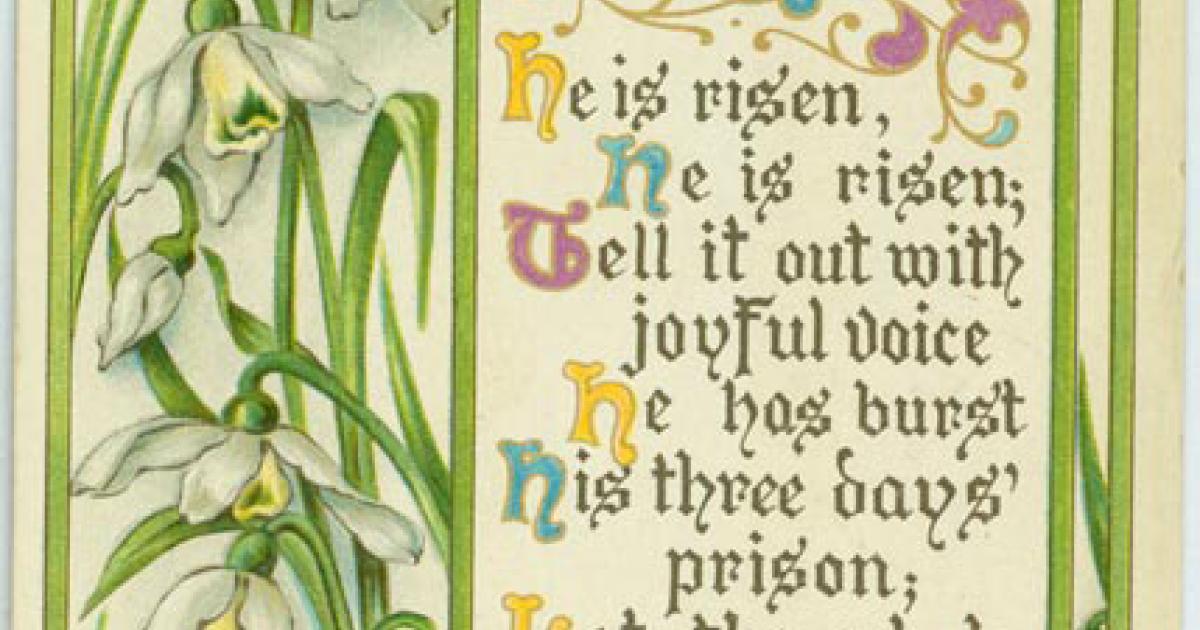 He is risen,
He is risen;
Tell it out with
joyful voice
He has burst
His three days'
prison;